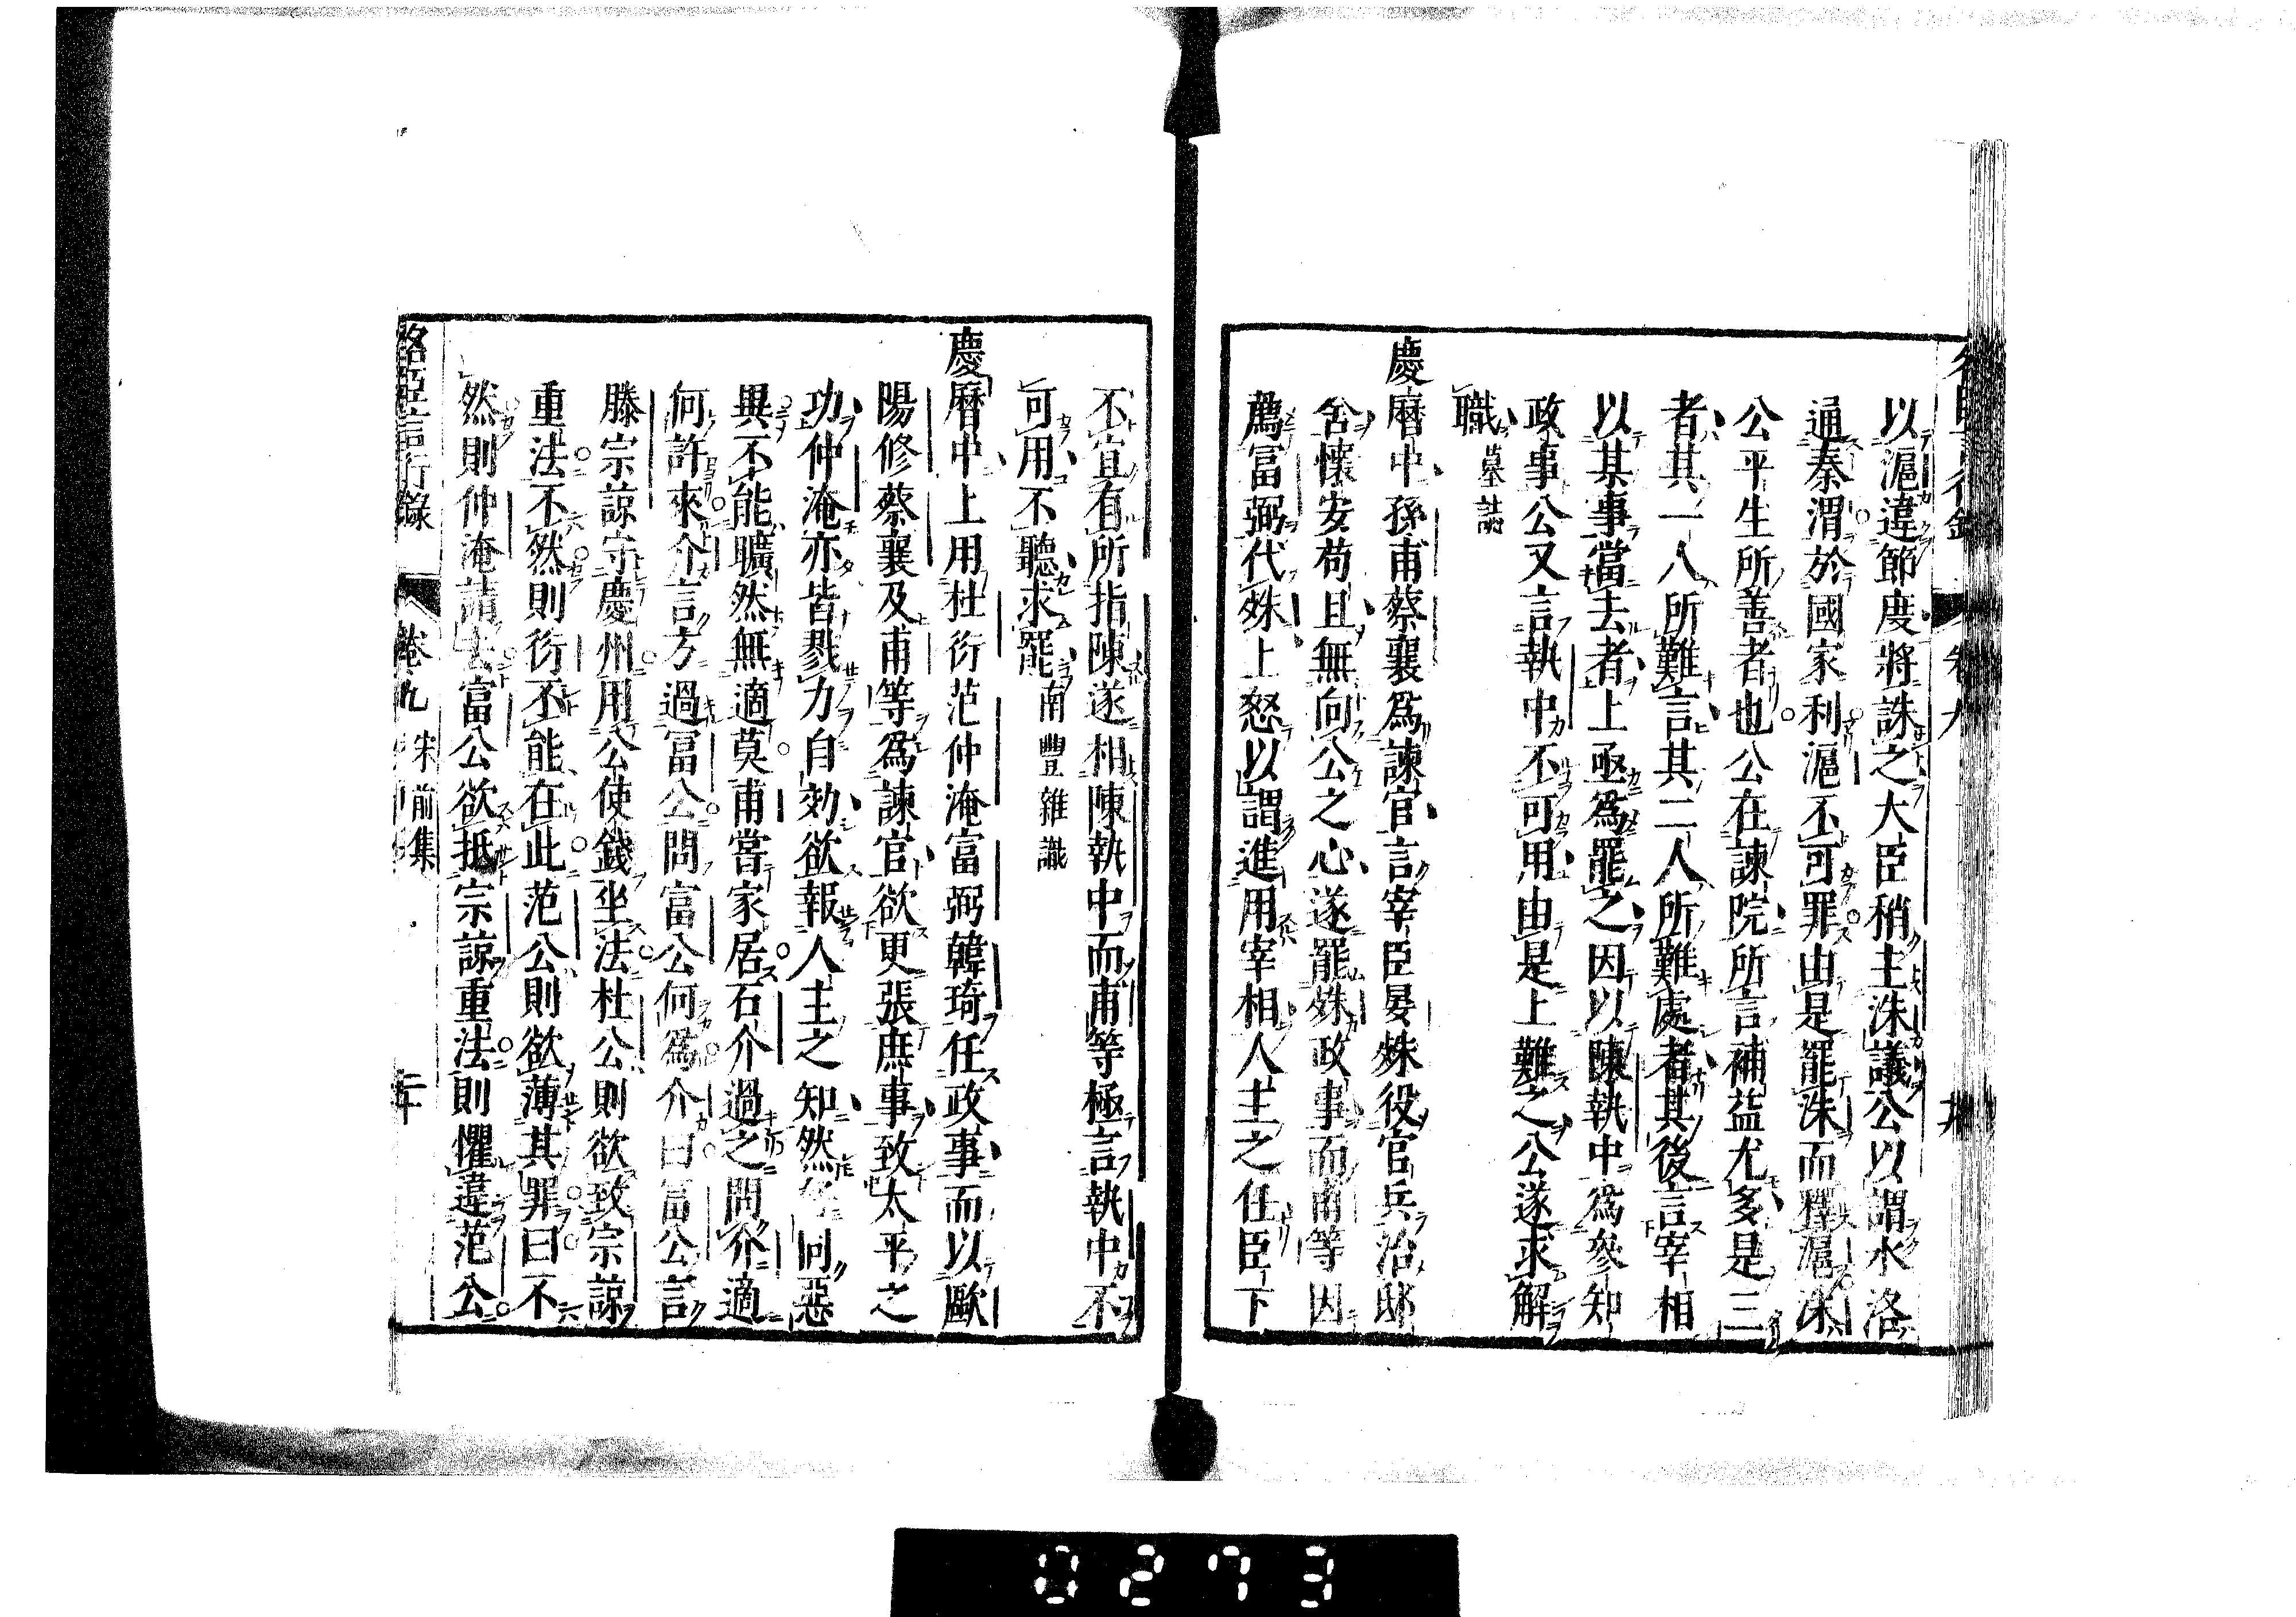 以滬違節度將誅之大臣稍主洙議公以謂水洛
通秦渭於國家利滬不可罪由是罷洙而釋滬洙
公平生所善者也公在諫院所言補益尤多是三
者其一人所難言其二人所難處者其後言宰相
以其事當去者上亟爲罷之因以陳執中爲參知
政事公又言執中不可用由是上難之公遂求解
職墓誌
慶曆中孫甫蔡襄爲諫官言宰臣晏殊役官兵治邸
舍懷安苟且無向公之心遂罷殊政事而甫等因
薦富弼代殊上怒以謂進用宰相人主之任臣下
不宜有所指陳遂相陳執中而甫等極言執中不
可用不聽求罷南豐雜識
慶曆中上用杜衍范仲淹富弼韓琦任政事而以歐
陽修蔡襄及甫等爲諫官欲更張庶事致太平之
功仲淹亦皆戮力自効欲報人主之知然 同惡
異不能曠然無適莫甫嘗家居石介過之問介適
何許來介言方過富公問富公何爲介曰富公言
滕宗諒守慶州用公使錢坐法杜公則欲致宗諒
重法不然則衍不能在此范公則欲薄其罪曰不
然則仲淹請去富公欲抵宗諒重法則懼違范公
言行錄 卷九 宋前集 二十